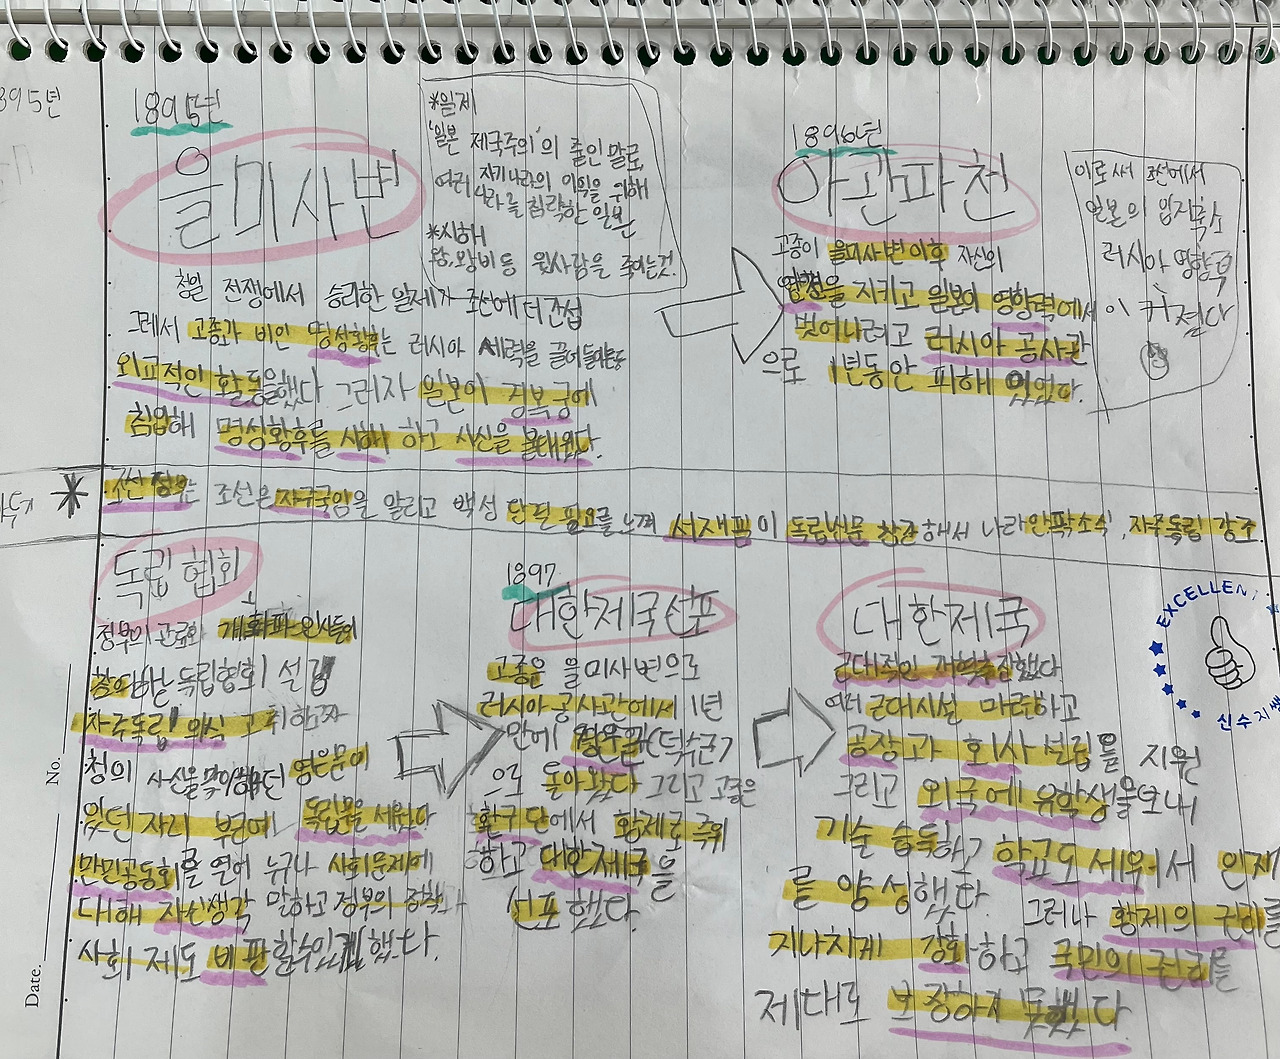 895년
1895년
을미사변
*일제
'일본 제국주의'의 줄인 말로,
자기나라의 이익을 위해
여러 나라를 침략한 일본
*시해
왕, 왕비 등 윗사람을 죽이는것.
청일 전쟁에서 승리한 일제가 조선에 더 간섭
그래서 고종과 비인 명성황후는 러시아 세력을 끌어들이는등
외교적인 활동을했다 그러자 일본이 경복궁에
침입해 명성황후를 시해 하고 시신을 불태웠다.
1896년
아관파천
고종이 을미사변 이후 자신의
안전을 지키고 일본의 영향력에서
벗어나려고 러시아 공사관
으로 1년동안 피해 있었다.
이로써 조선에서
일본의 입지축소
러시아 영향력
이 커졌다
* 조선 정부는 조선은 자주국임을 알리고 백성 단결 필요를 느껴 서재필이 독립신문 창간해서 나라안팎소식, 자주독립 강조
독립협회
정부의 관료와 개화파 인사들이
참여하는 독립협회 설립
자주독립 의식 고취하고자
청의 사신을 맞이하던 영은문이
있던 자리 부근에 독립문을 세웠다
만민공동회를 열어 누구나 사회문제에
대해 자신생각 말하고 정부의 정책과
사회 제도 비판할수있게 했다.
1897.
대한제국선포
고종은 을미사변으로
러시아 공사관에서 1년
만에 경운궁(덕수궁)
으로 돌아왔다 그리고 고종은
환구단에서 황제로 즉위
하고 대한제국을
선포했다.
대한제국
근대적인 개혁추진했다
여러 근대시설 마련하고
공장과 회사 설립을 지원
그리고 외국에 유학생을보내
기술 습득하고 학교도 세워서 인재
를 양성했다. 그러나 황제의 권리를
지나치게 강화하고 국민의 권리를
제대로 보장하지 못했다
EXCELLENT
신수지쌤
No.
Date.